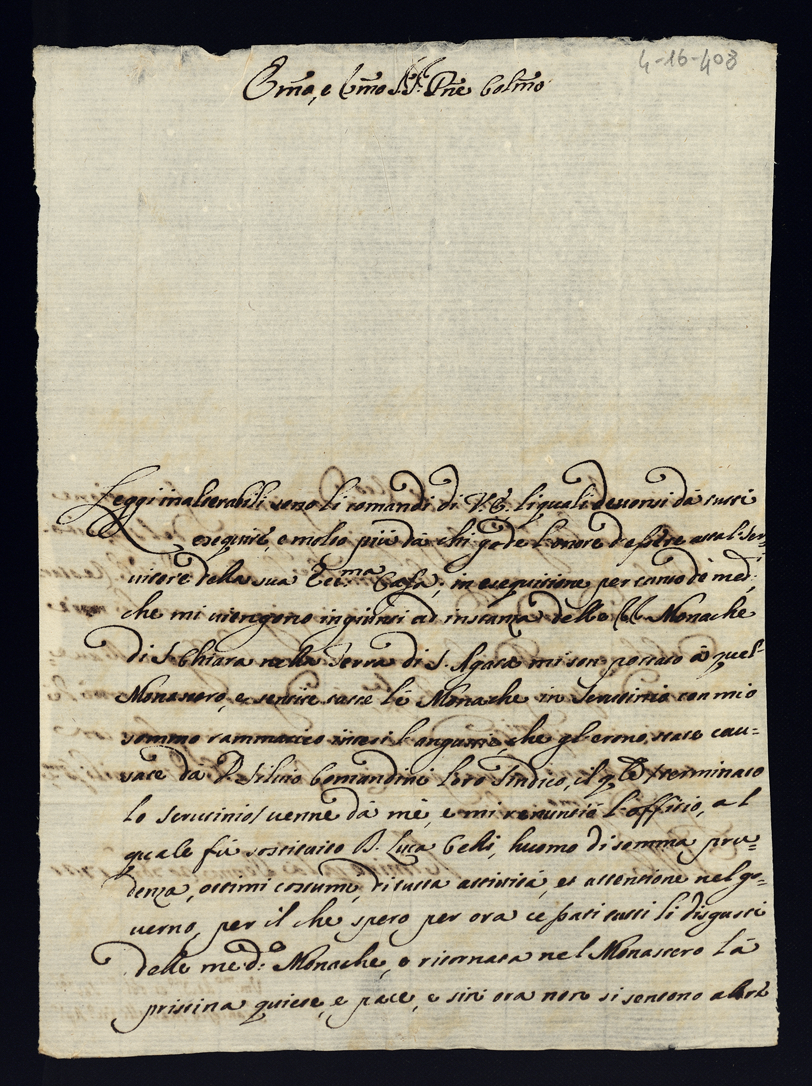 4-16-408
Em̃o, e Rm̃o Sig. Pr̃ne Colm̃o
Leggi inalterabili sono li comandi di V.E. li quali devonsi dà tutti
eseguire, e molto più dà chi gode l'onore d'essere attual ser=
vitore della sua Ecc.ma Casa; in esequtione per tanto de med.i
che mi viengono ingiunti ad instanza delle RR Monache
di S. Chiara nella Terra di S. Agata mi son portato à quel
Monastero, e sentite tutte le Monache in Scrutinio con mio
sommo rammarico intesi l'angustie, che gl'erono state cau=
sate da D. Silvio Comandini loro Sindico, il q.le /terminato
lo scrutinio/ venne dà mè, e mi renuntiò l'offitio, al
quale fù sostituito D. Luca Celli, huomo di somma pru=
denza, ottimi costumi, di tutta attività, et attentione nel go=
verno, per il che spero per ora cessati tutti li disgusti
delle med.e Monache, e ritornata nel Monastero la
pristina quiete, e pace, e sin ora non si sentono altri